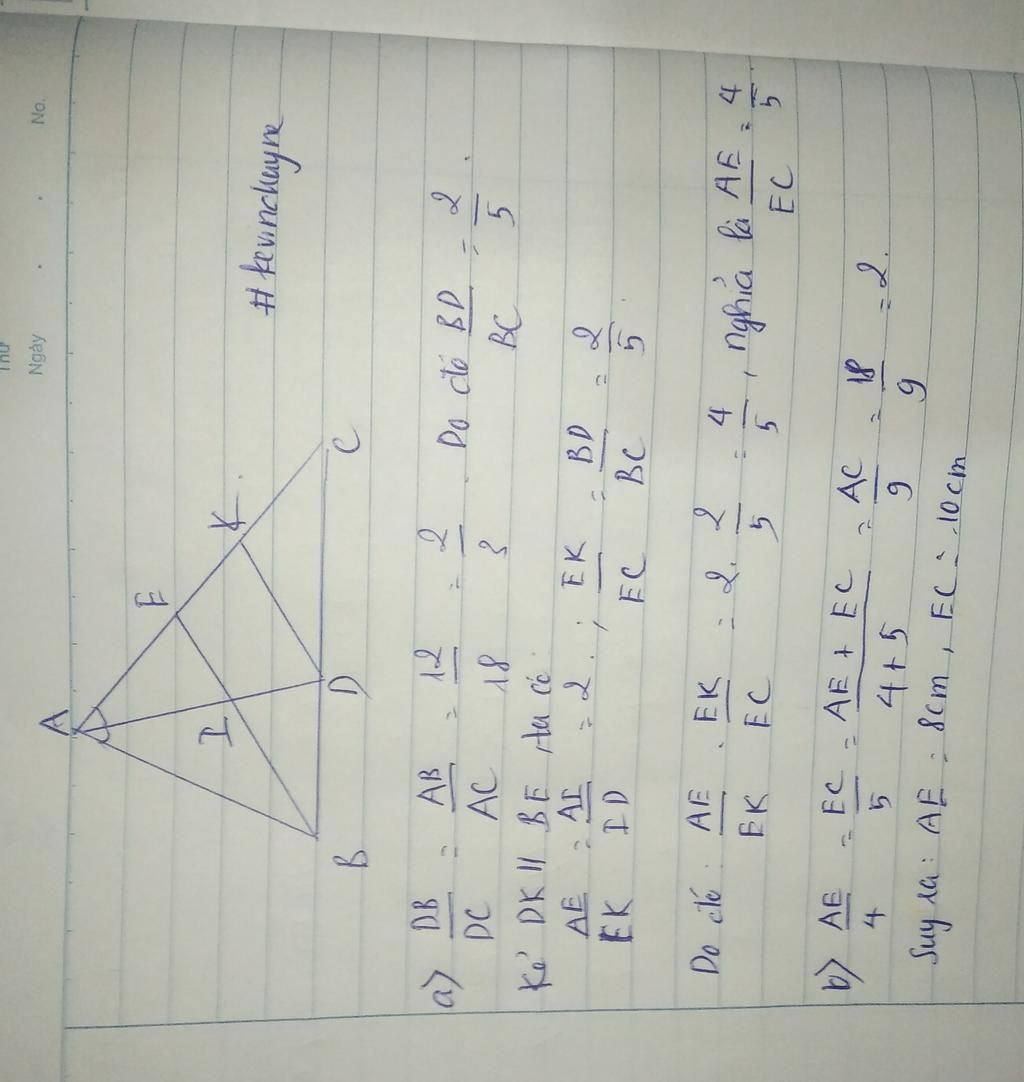 Thứ
Ngày . . No.
A
E
K
I
B
D
C
#kevinchayne
a) DB/DC = AB/AC = 12/18 = 2/3 . Do đó BD/BC = 2/5 .
Kẻ DK || BE, ta có:
AE/EK = AI/ID = 2 ; EK/EC = BD/BC = 2/5 .
Do đó: AE/EK . EK/EC = 2 . 2/5 = 4/5 , nghĩa là AE/EC = 4/5 .
b) AE/4 = EC/5 = AE + EC/4 + 5 = AC/9 = 18/9 = 2 .
Suy ra: AE = 8cm, EC = 10cm